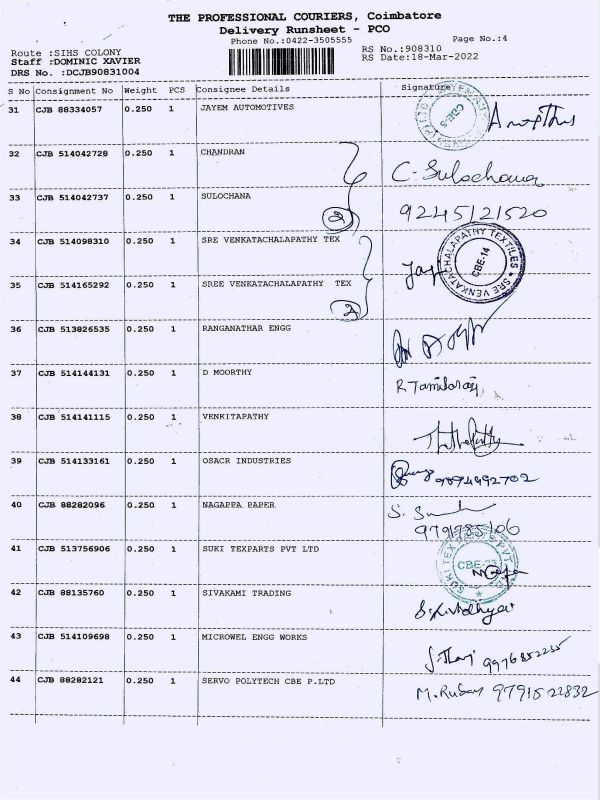 THE PROFESSIONAL COURIERS, Coimbatore
Delivery Runsheet - PCO
Phone No.:0422-3505555
Page No.:4
Route :SIHS COLONY
RS No.:908310
Staff :DOMINIC XAVIER
RS Date:18-Mar-2022
DRS No. :DCJB90831004
S No Consignment No Weight PCS Consignee Details Signature
31 CJB 88334057 0.250 1 JAYEM AUTOMOTIVES
CBE-5
32 CJB 514042728 0.250 1 CHANDRAN C. Sulochana
33 CJB 514042737 0.250 1 SULOCHANA 9245121520
2
34 CJB 514098310 0.250 1 SRE VENKATACHALAPATHY TEX
SRE VENKATACHALAPATHY TEXTILES
CBE-14
35 CJB 514165292 0.250 1 SREE VENKATACHALAPATHY TEX
2
36 CJB 513826535 0.250 1 RANGANATHAR ENGG
37 CJB 514144131 0.250 1 D MOORTHY
38 CJB 514141115 0.250 1 VENKITAPATHY
39 CJB 514133161 0.250 1 OSACR INDUSTRIES 9894492702
40 CJB 88282096 0.250 1 NAGAPPA PAPER
9791785106
41 CJB 513756906 0.250 1 SUKI TEXPARTS PVT LTD
42 CJB 88135760 0.250 1 SIVAKAMI TRADING
43 CJB 514109698 0.250 1 MICROWEL ENGG WORKS 9976852255
44 CJB 88282121 0.250 1 SERVO POLYTECH CBE P.LTD 9791522832